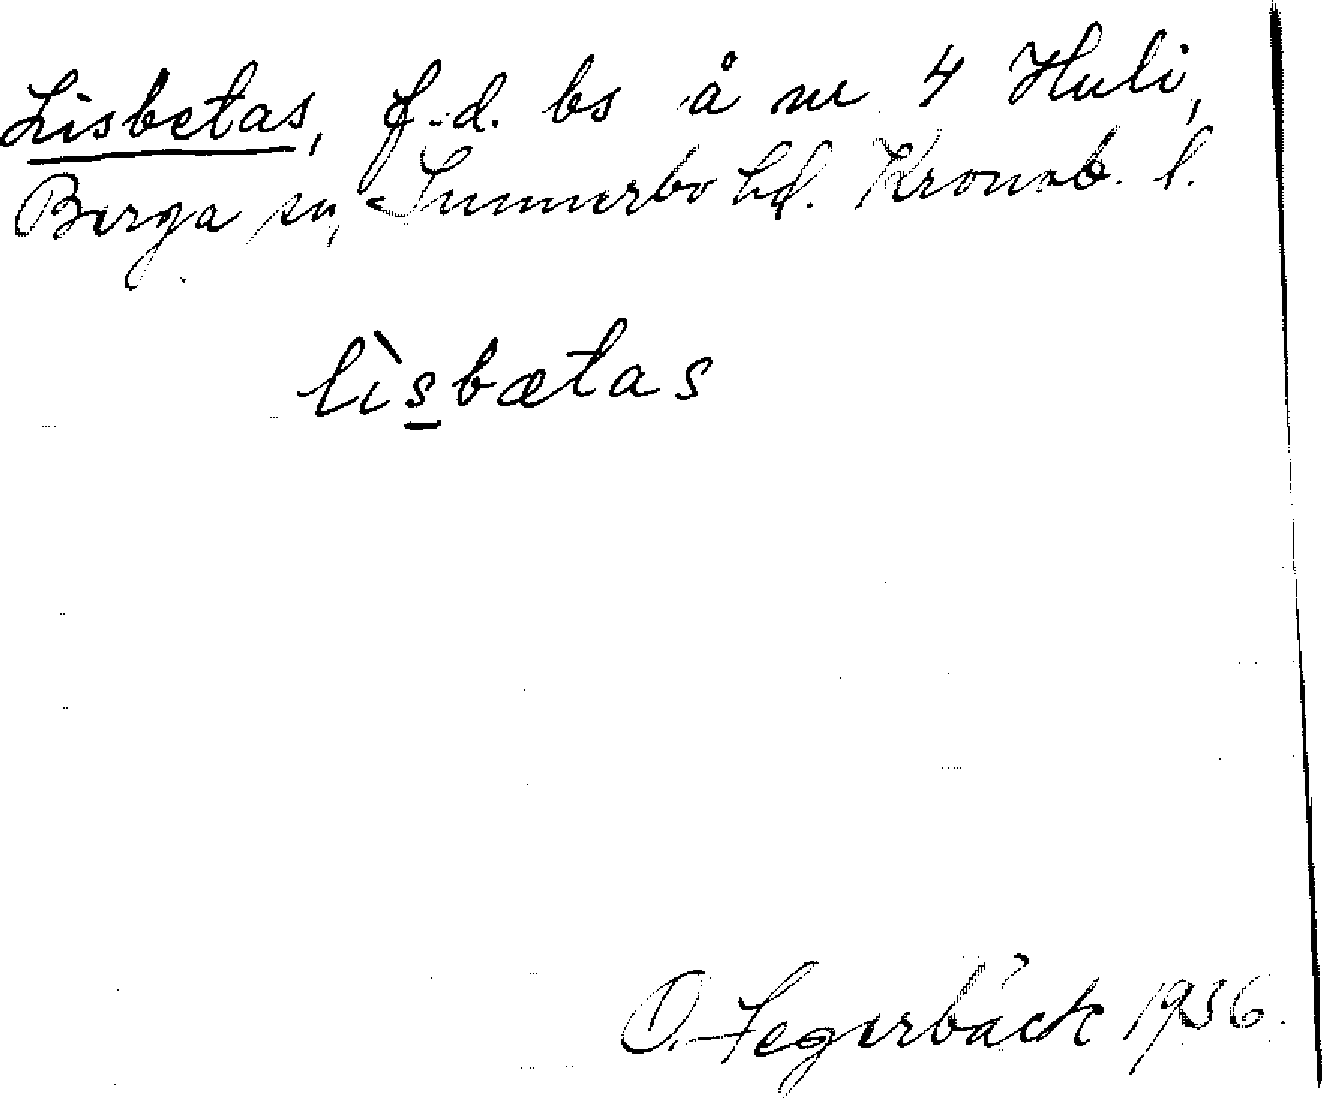 Lisbetas, f.d. bs å nr 4 Huli,
Berga sn, Sunnerbo hd. Kronob. l.
lìsbætas
O. Segerbäck 1936.